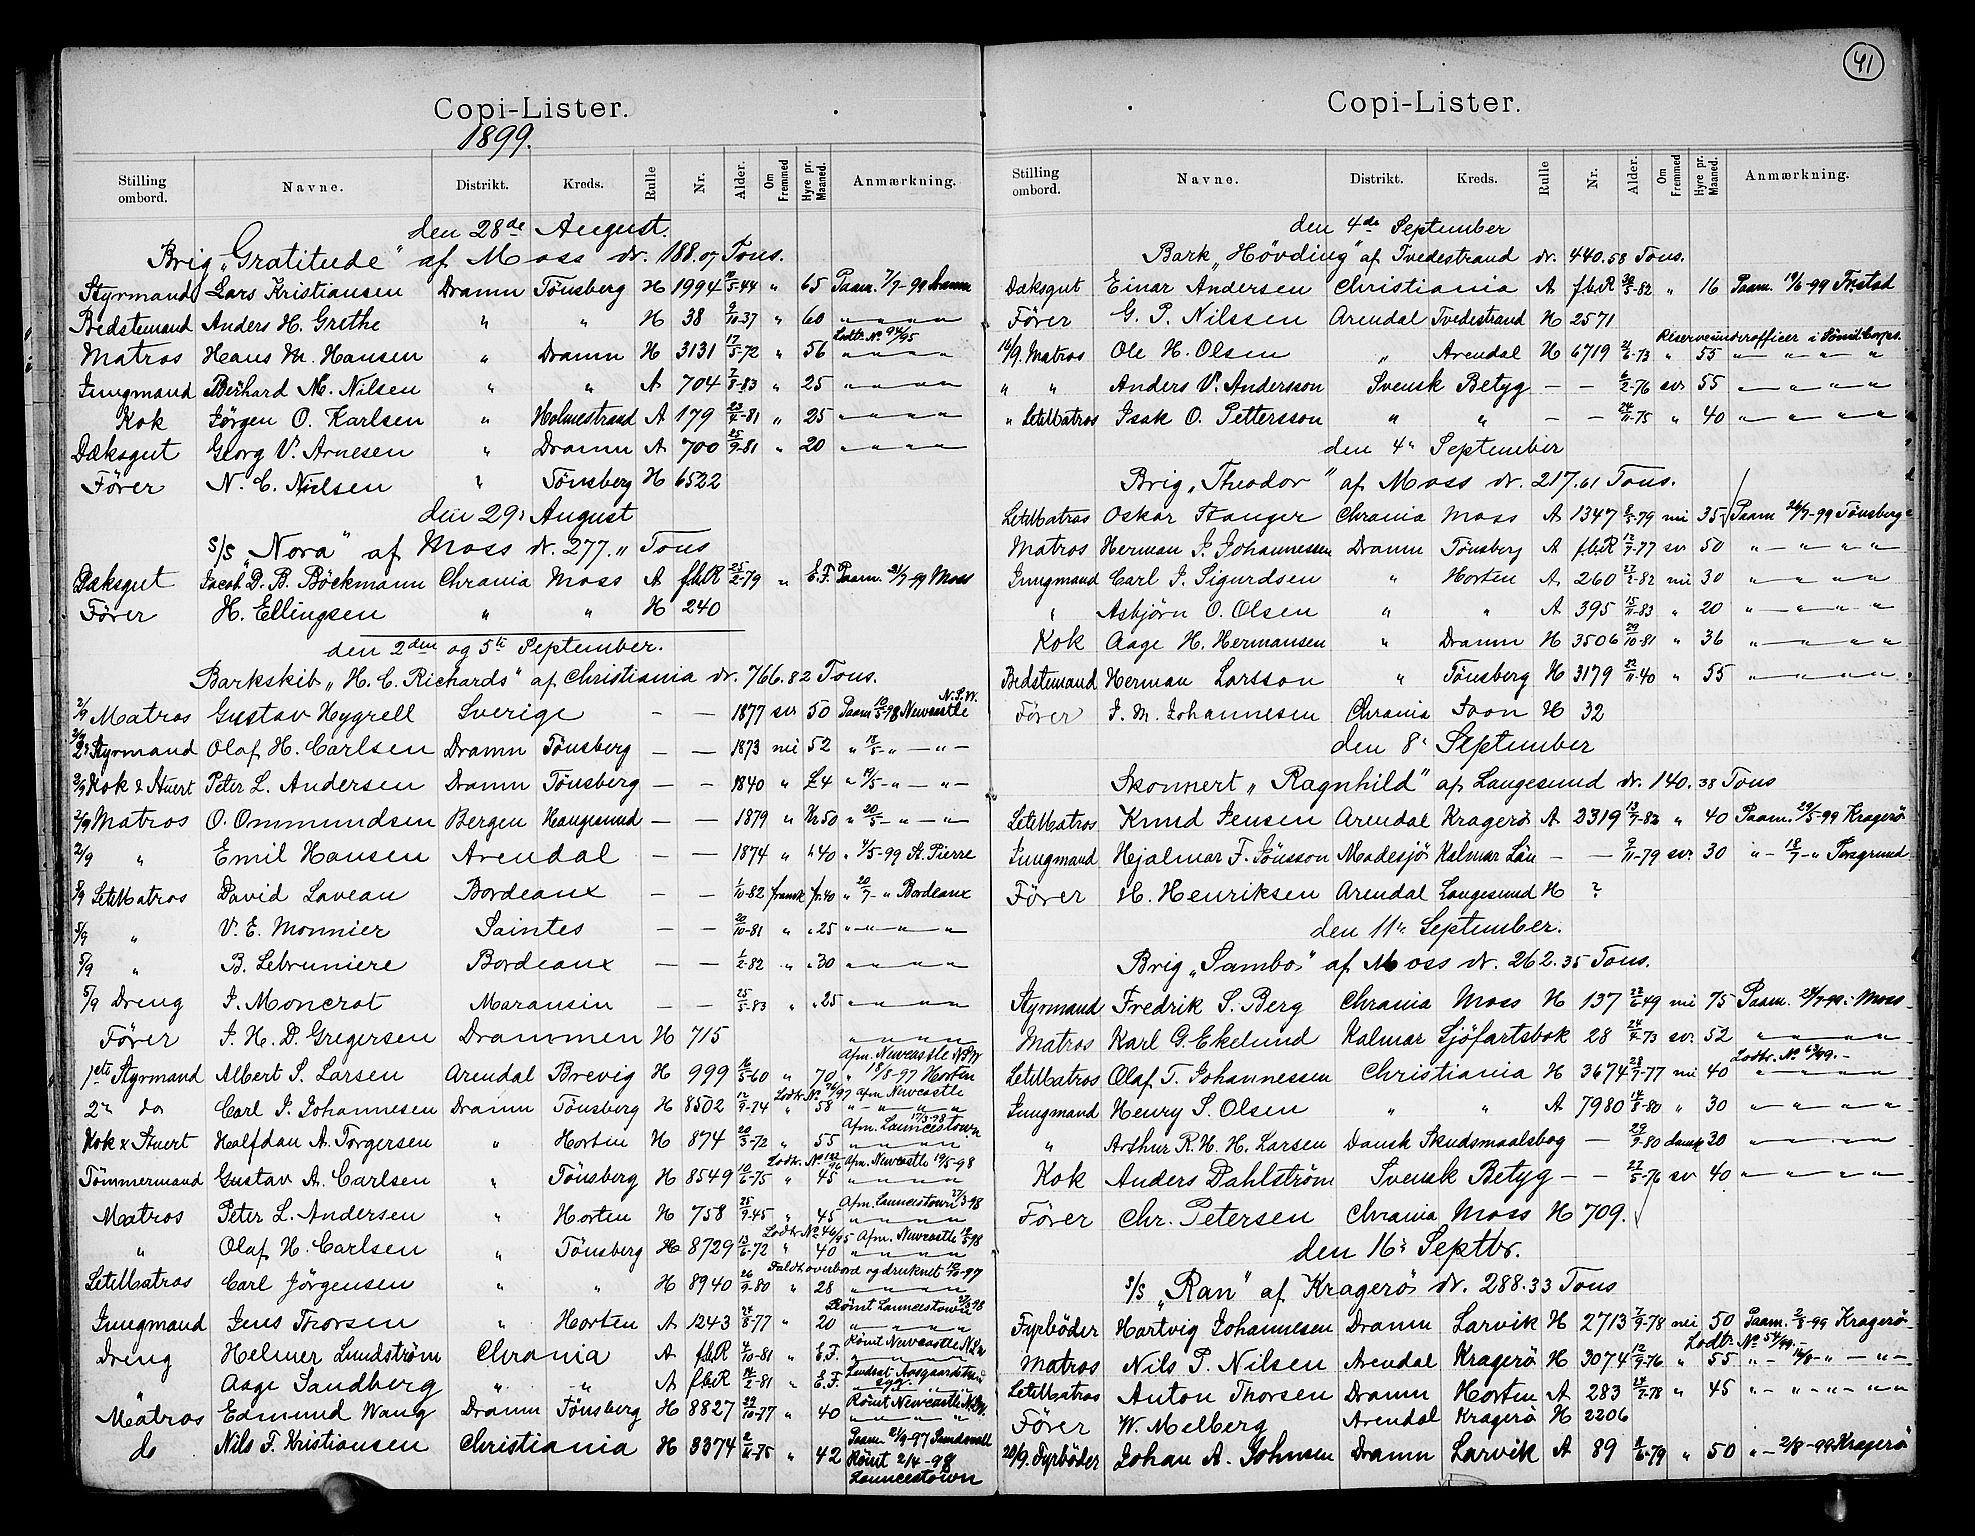 41
Copi-Lister.
1899.
Stilling ombord. Navne. Distrikt. Kreds. Rulle Nr. Alder. Om Fremmed Hyre pr. Maaned. Anmærkning.
den 28de August.
Brig „Gratitude" af Moss dr. 188.07 Tons.
Styrmand Lars Kristiansen Dramn Tönsberg H 1994 5-44 " 65 Paam. 7/9-99
Bedstemand Anders H. Grethe " " H 38 9/10-37 " 60 " " " "
Matros Hans M. Hansen " Dramn H 3131 17/5-72 " 56 Lodtr. No 94/95 " " " "
Jungmand Berhard M. Nilsen " " A 704 7/8-83 " 25 " " " "
Kok Jörgen O. Karlsen " Holmestrand A 179 -81 " 25 " " " "
Dæksgut Georg V. Arnesen " Dramn A 700 25/9-81 " 20 " " " "
Förer N. C. Nielsen " Tönsberg H 6522
den 29. August
S/S „Nora" af Moss dr. 277 " Tons
Dæksgut Jacob D. B. Böckmann Chrania Moss A f.b.R 25/2-79 " E.F. Paam. 31/7-99 Moss
Förer H. Ellingsen " " H 240
den 2den og 5te September.
Barkskib „H. C. Richards" af Christiania dr. 766.82 Tons.
2/9 Matros Gustav Hygrell Sverige — — 1877 svr 50 Paam 10/5-98 Newcastle N.S.W.
2/9 2n Styrmand Olaf H. Carlsen Dramn Tönsberg — — 1873 nei 52 " 18/5 - " — " —
2/9 Kok & Stuert Peter L. Andersen Dramn Tönsberg — — 1840 " £4 " 19/5 - " — " —
2/9 Matros O. Ommundsen Bergen Haugesund — — 1879 " Kr 50 " 20/5 - " — " —
2/9 " Emil Hansen Arendal — — 1874 " " 40 " /5-99 St. Pierre
5/9 LetMatros David Laveau Bordeaux — — 1/10-82 fransk fr. 40 " 20/7 - " Bordeaux
5/9 " V. E. Monnier Saintes — — 20/10-81 " " 25 " " " " "
5/9 " B. Lebruniere Bordeaux — — 1/2-82 " " 30 " " " "
5/9 Dreng J. Moncrot Maransin — — 25/5-83 " " 25 " " " "
Förer J. H. D. Gregersen Drammen H 715 " " " "
1ste Styrmand Albert S. Larsen Arendal Brevig H 999 16/5-60 " 70 Afm. Newcastle N.S.W " 18/8-97 Horten
2n do Carl J. Johannesen Dramn Tönsberg H 8502 12/9-74 " 58 Lodtr. No 76/97 Afm Newcastle " " " "
Kok & Stuert Halfdan A. Torgersen " Horten H 874 20/5-72 " 55 Afm. Launcestown 17/3-98 " " " "
Tömmermand Gustav A. Carlsen " Tönsberg H 8549 10/6-75 " 45 Lodtr. No 122/96 Afm. Newcastle 19/5-98 " " " "
Matros Peter L. Andersen " Horten H 758 25/9-45 " 45 Afm. Launcestown 27/3-98 " " " "
" Olaf H. Carlsen " Tönsberg H 8729 13/6-72 " 40 Lodtr. No 46/95 Afm. Newcastle -98 " " " "
LetMatros Carl Jörgensen " " H 8940 26/9-80 " 28 Faldt overbord og druknet 12/10-97 " " " "
Jungmand Jens Thorsen " Horten A 1243 24/8-77 " 20 Römt Launcestown -98 " " " "
Dreng Helmer Lundström Chrania A f.b.R 2/10-81 " E.F. Römt Newcastle N.S.W " " " "
" Aage Sandberg " " A f.b.R -81 " E.F. " " " "
Matros Edmund Wang Dramn Tönsberg H 8827 29/10-77 " 40 Römt Newcastle N.S.W. " " " "
do Nils F. Kristiansen Christiania H 3374 2/11-75 " 42 Paam 21/9-97 Sundsvall Römt 2/4-98 Launcestown
Copi-Lister.
Stilling ombord. Navne. Distrikt. Kreds. Rulle Nr. Alder. Om Fremmed Hyre pr. Maaned. Anmærkning.
den 4de September
Bark „Hövding" af Tvedestrand dr. 440.58 Tons.
Dæksgut Einar Andersen Christiania A f.b.R 30/5-82 " 16 Paam. 19/6-99 Fr.stad
Förer G. P. Nilssen Arendal Tvedestrand H 2571
14/9. Matros Ole H. Olsen " Arendal H 6719 21/6-73 " 55 Reserveunderofficer i Sömil.Corps. " " " "
" " Anders V. Andersson Svensk Betyg — — 6/2-76 svr. 55 " " " "
" LetMatros Isak O. Pettersson " " — — 24/11-75 " 40 " " " "
den 4n September
Brig „Theodor" af Moss dr. 217.61 Tons.
LetMatros Oskar Stanger Chrania Moss A 1347 8/5-79 nei 35 Paam 26/7-99 Tönsberg
Matros Herman J. Johannessen Dramn Tönsberg A f.b.R 12/9-77 sv 50 " — " — " — "
Jungmand Carl J. Sigurdsen " Horten A 260 27/2-82 nei 30 " — " " "
" Asbjörn O. Olsen " " A 395 15/11-83 " 20 " — " " "
Kok Aage H. Hermansen " Dramn H 3506 29/10-81 " 36 " — " " "
Bedstemand Herman Larsson " Tönsberg H 3179 22/11-40 " 55 " — " " "
Förer J. M. Johannesen Chrania Soon H 32
den 8n September
Skonnert „Ragnhild" af Langesund dr. 140.38 Tons
LetMatros Knud Jensen Arendal Kragerö A 2319 13/7-82 " 40 Paam. 29/5-99 Kragerö
Jungmand Hjalmar F. Jönsson Madesjö Kalmar Län — — 9/11-79 svr. 30 " - 18/7 - " Porsgrund
Förer H. Henriksen Arendal Langesund H ?
den 11n September.
Brig „Sambo" af Moss dr. 262.35 Tons.
Styrmand Fredrik S. Berg Chrania Moss H 137 22/6-49 nei 75 Paam. 24/7-99 Moss
Matros Karl G. Ekelund Kalmar Sjöfartsbok 28 24/4-73 sv. 52 " " " "
LetMatros Olaf T. Johannessen Christiania H 3674 28/7-77 nei 40 Lodtr. No 63/99. - " " " "
Jungmand Henry S. Olsen " " A 7980 14/8-80 " 30 " " " "
" Arthur R. H. H. Larsen Dansk Skudsmaalsbog — 29/9-80 dansk 20 " " " "
Kok Anders Dahlström Svensk Betyg — — 27/5-76 sv 40 " " " "
Förer Chr. Petersen Chrania Moss H 709.
den 16n Septbr.
S/S „Ran" af Kragerö dr. 288.33 Tons
Fyrböder Hartvig Johannesen Dramn Larvik H 2713 7/9-78 nei 50 Paam. 2/8-99 Kragerö
Matros Nils P. Nilsen Arendal Kragerö H 3074 12/9-76 " 55 Lodtr. No 54/99. " - - " — " —
LetMatros Anton Thorsen Dramn Horten A 283 24/7-78 " 45 " — " — " — "
Förer W. Melberg Arendal Kragerö H 2206
20/9. Fyrböder Johan A. Johnsen Dramn Larvik A 89 8/6-79 " 50 " — 2/8-99 Kragerö